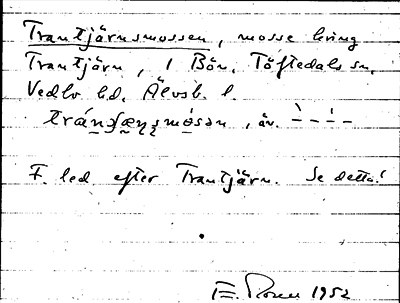 Trantjärnsmossen, mosse kring
Trantjärn, i Bön, Töftedals sn,
Vedbo hd. Älvsb. l.
F. led efter Trantjärn. Se detta!
1952